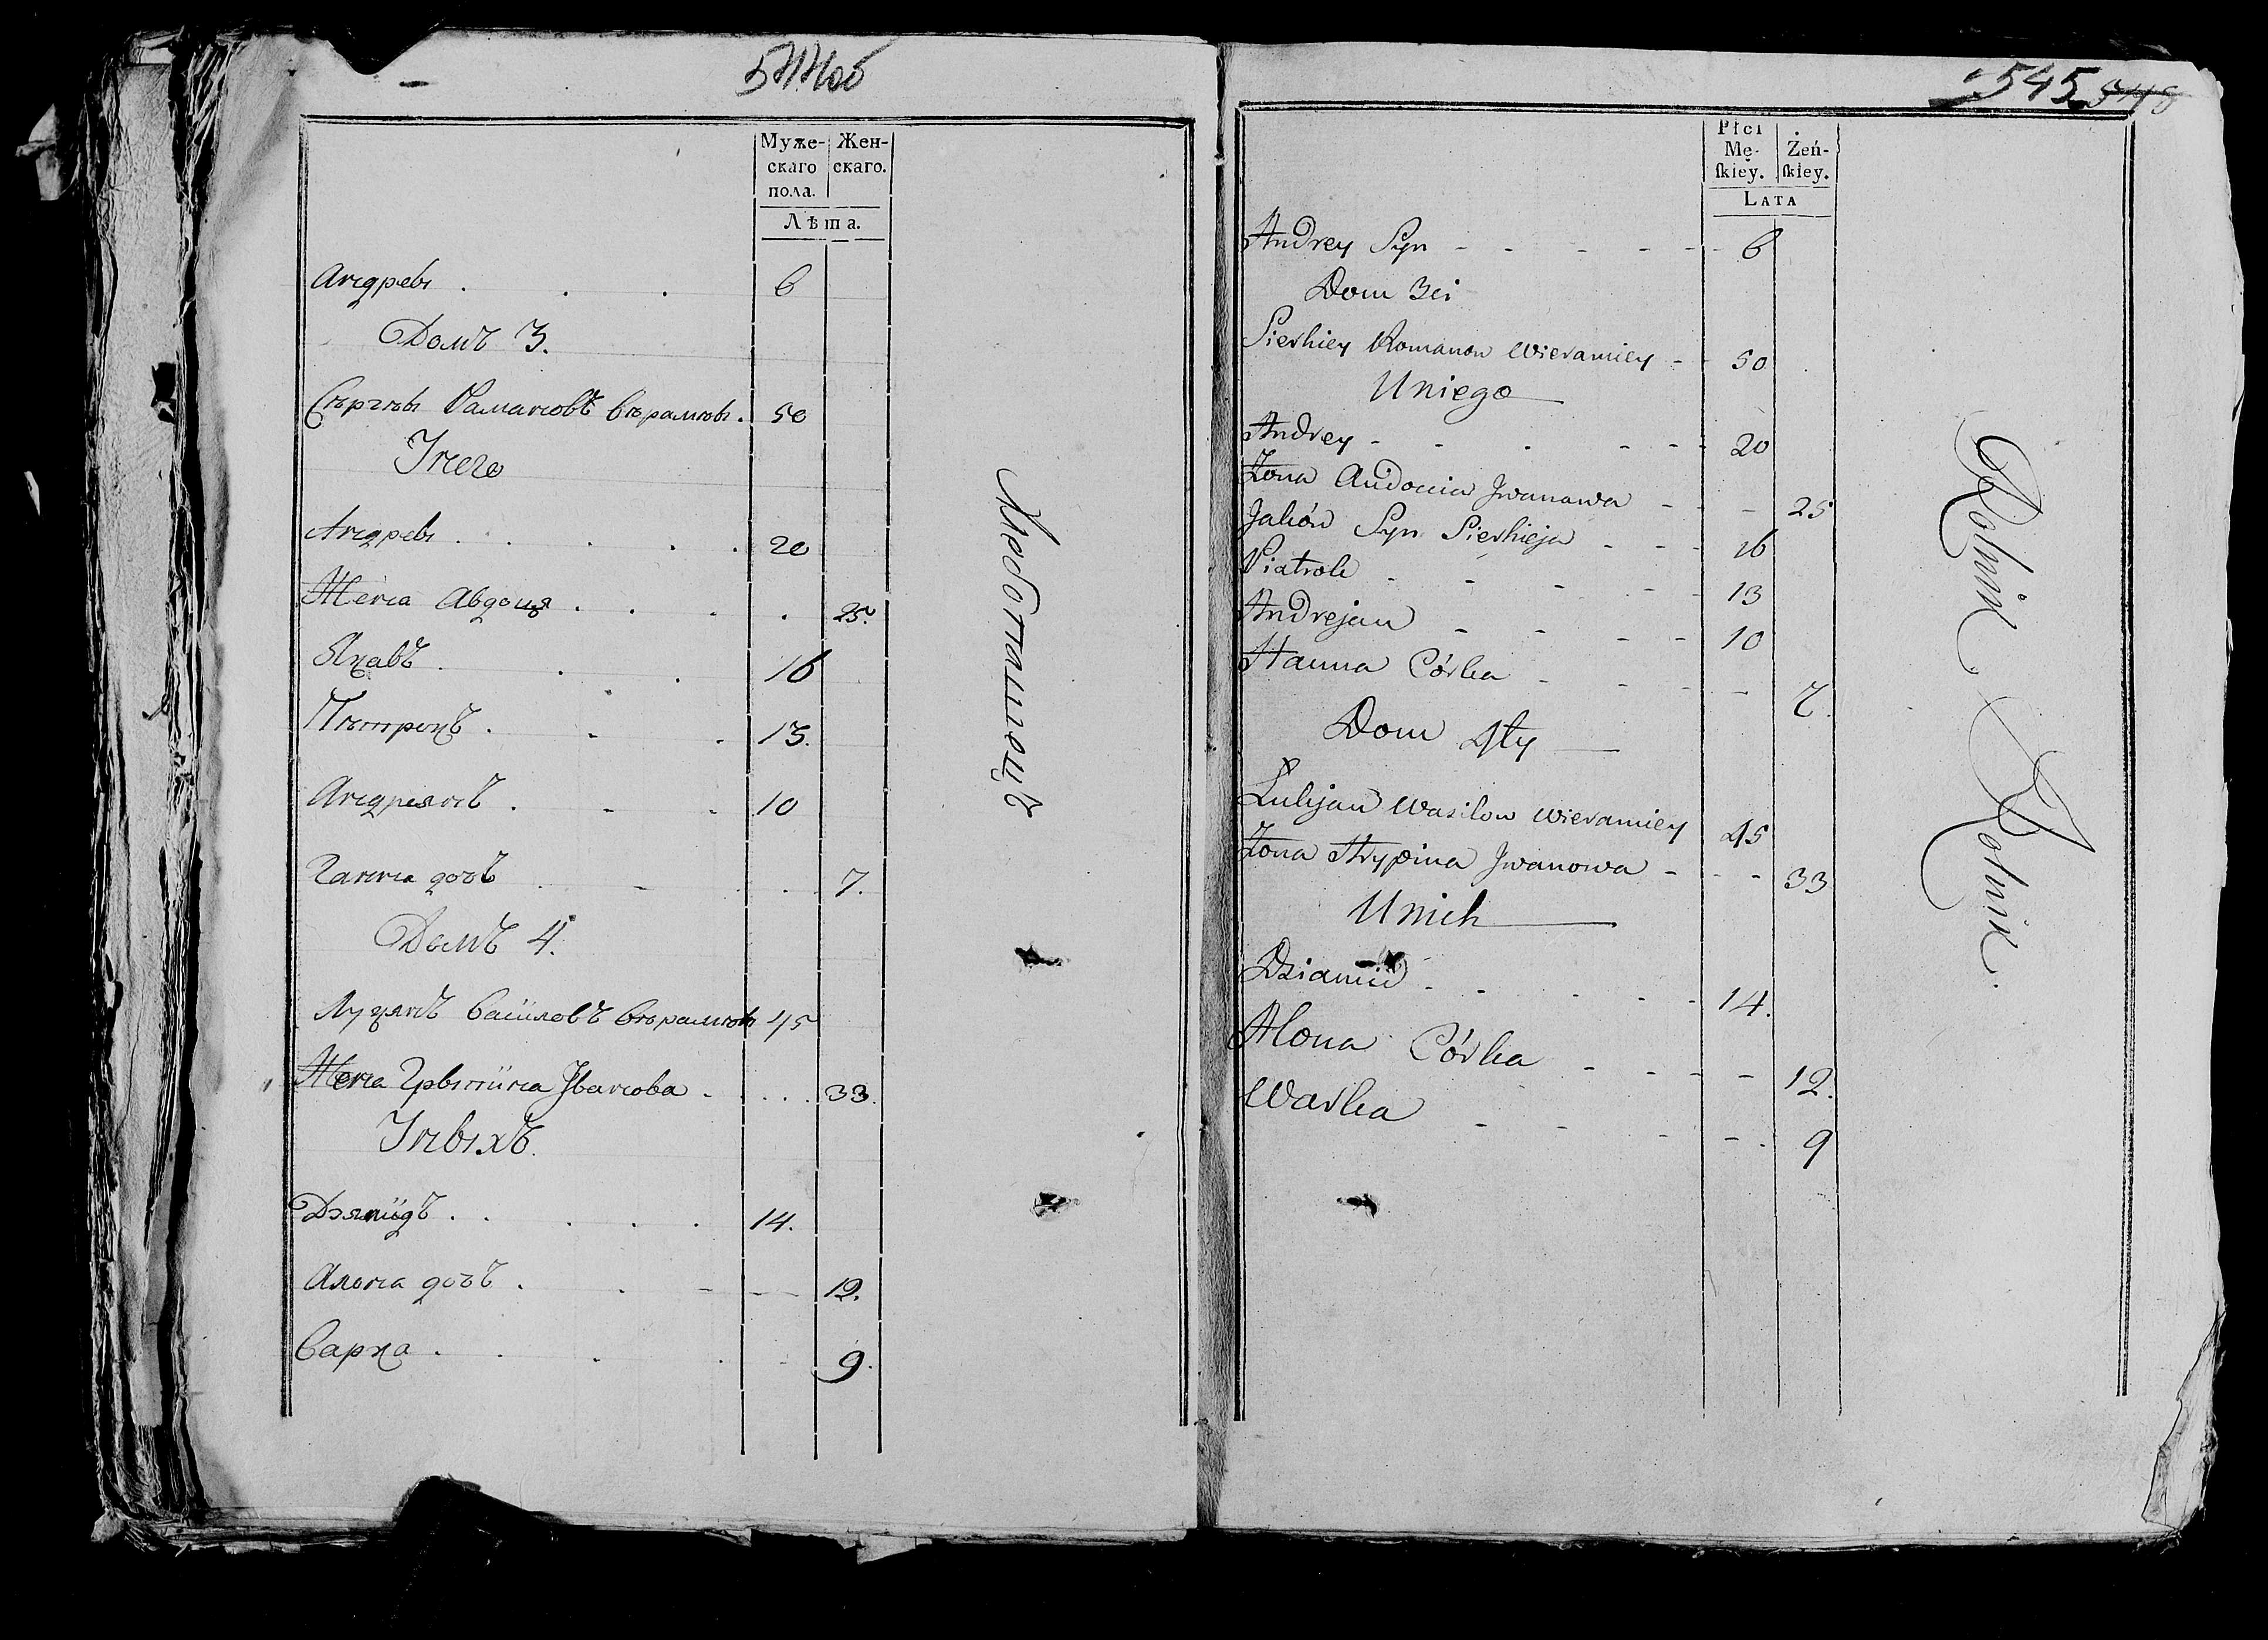 544об
Муже-
скаго
пола.
Жен-
скаго.
Лѣта.
Андрей . . . 6
Домъ 3.
Сѣргѣй Рамановъ Вѣрамѣй . 50
Унего
Андрей . . . . . 20
Жена Авдоця . . . . 25.
Якавъ . . . 16
Пѣтрокъ . . . 13.
Андреянъ . . . 10
Ганна дочъ . . . . 7.
Домъ 4.
Лукянъ Василовъ Вѣрамѣй 45
Жена Грыпина Јванова . . . . 33.
Унихъ.
Дзямидъ . . . . 14.
Алона дочъ . . - - 12.
Варка . . . . - 9.
Хлеботашецъ
545 548
Płci
Mę-
ſkiey.
Żeń-
ſkiey.
LATA
Andrey Syn - - - - - 6
Dom 3ci
Sierhiey Romanow Wieramiey - - 50
Uniego
Andrey - - - - - 20
Żona Audocia Jwanawa - - - 25
Jaków Syn Sierhieja - - - 16
Piatrok - - - - - 13
Andrejan - - - - 10
Hanna Córka - - - - 7.
Dom 4ty
Łukjan Wasilow Wieramiey 45
Żona Hrypina Jwanowa - - - 33
Unich
Dziamid - - - - - 14.
Alona Córka - - - - 12.
Warka - - - - - 9
Rolnik
Rolnik.